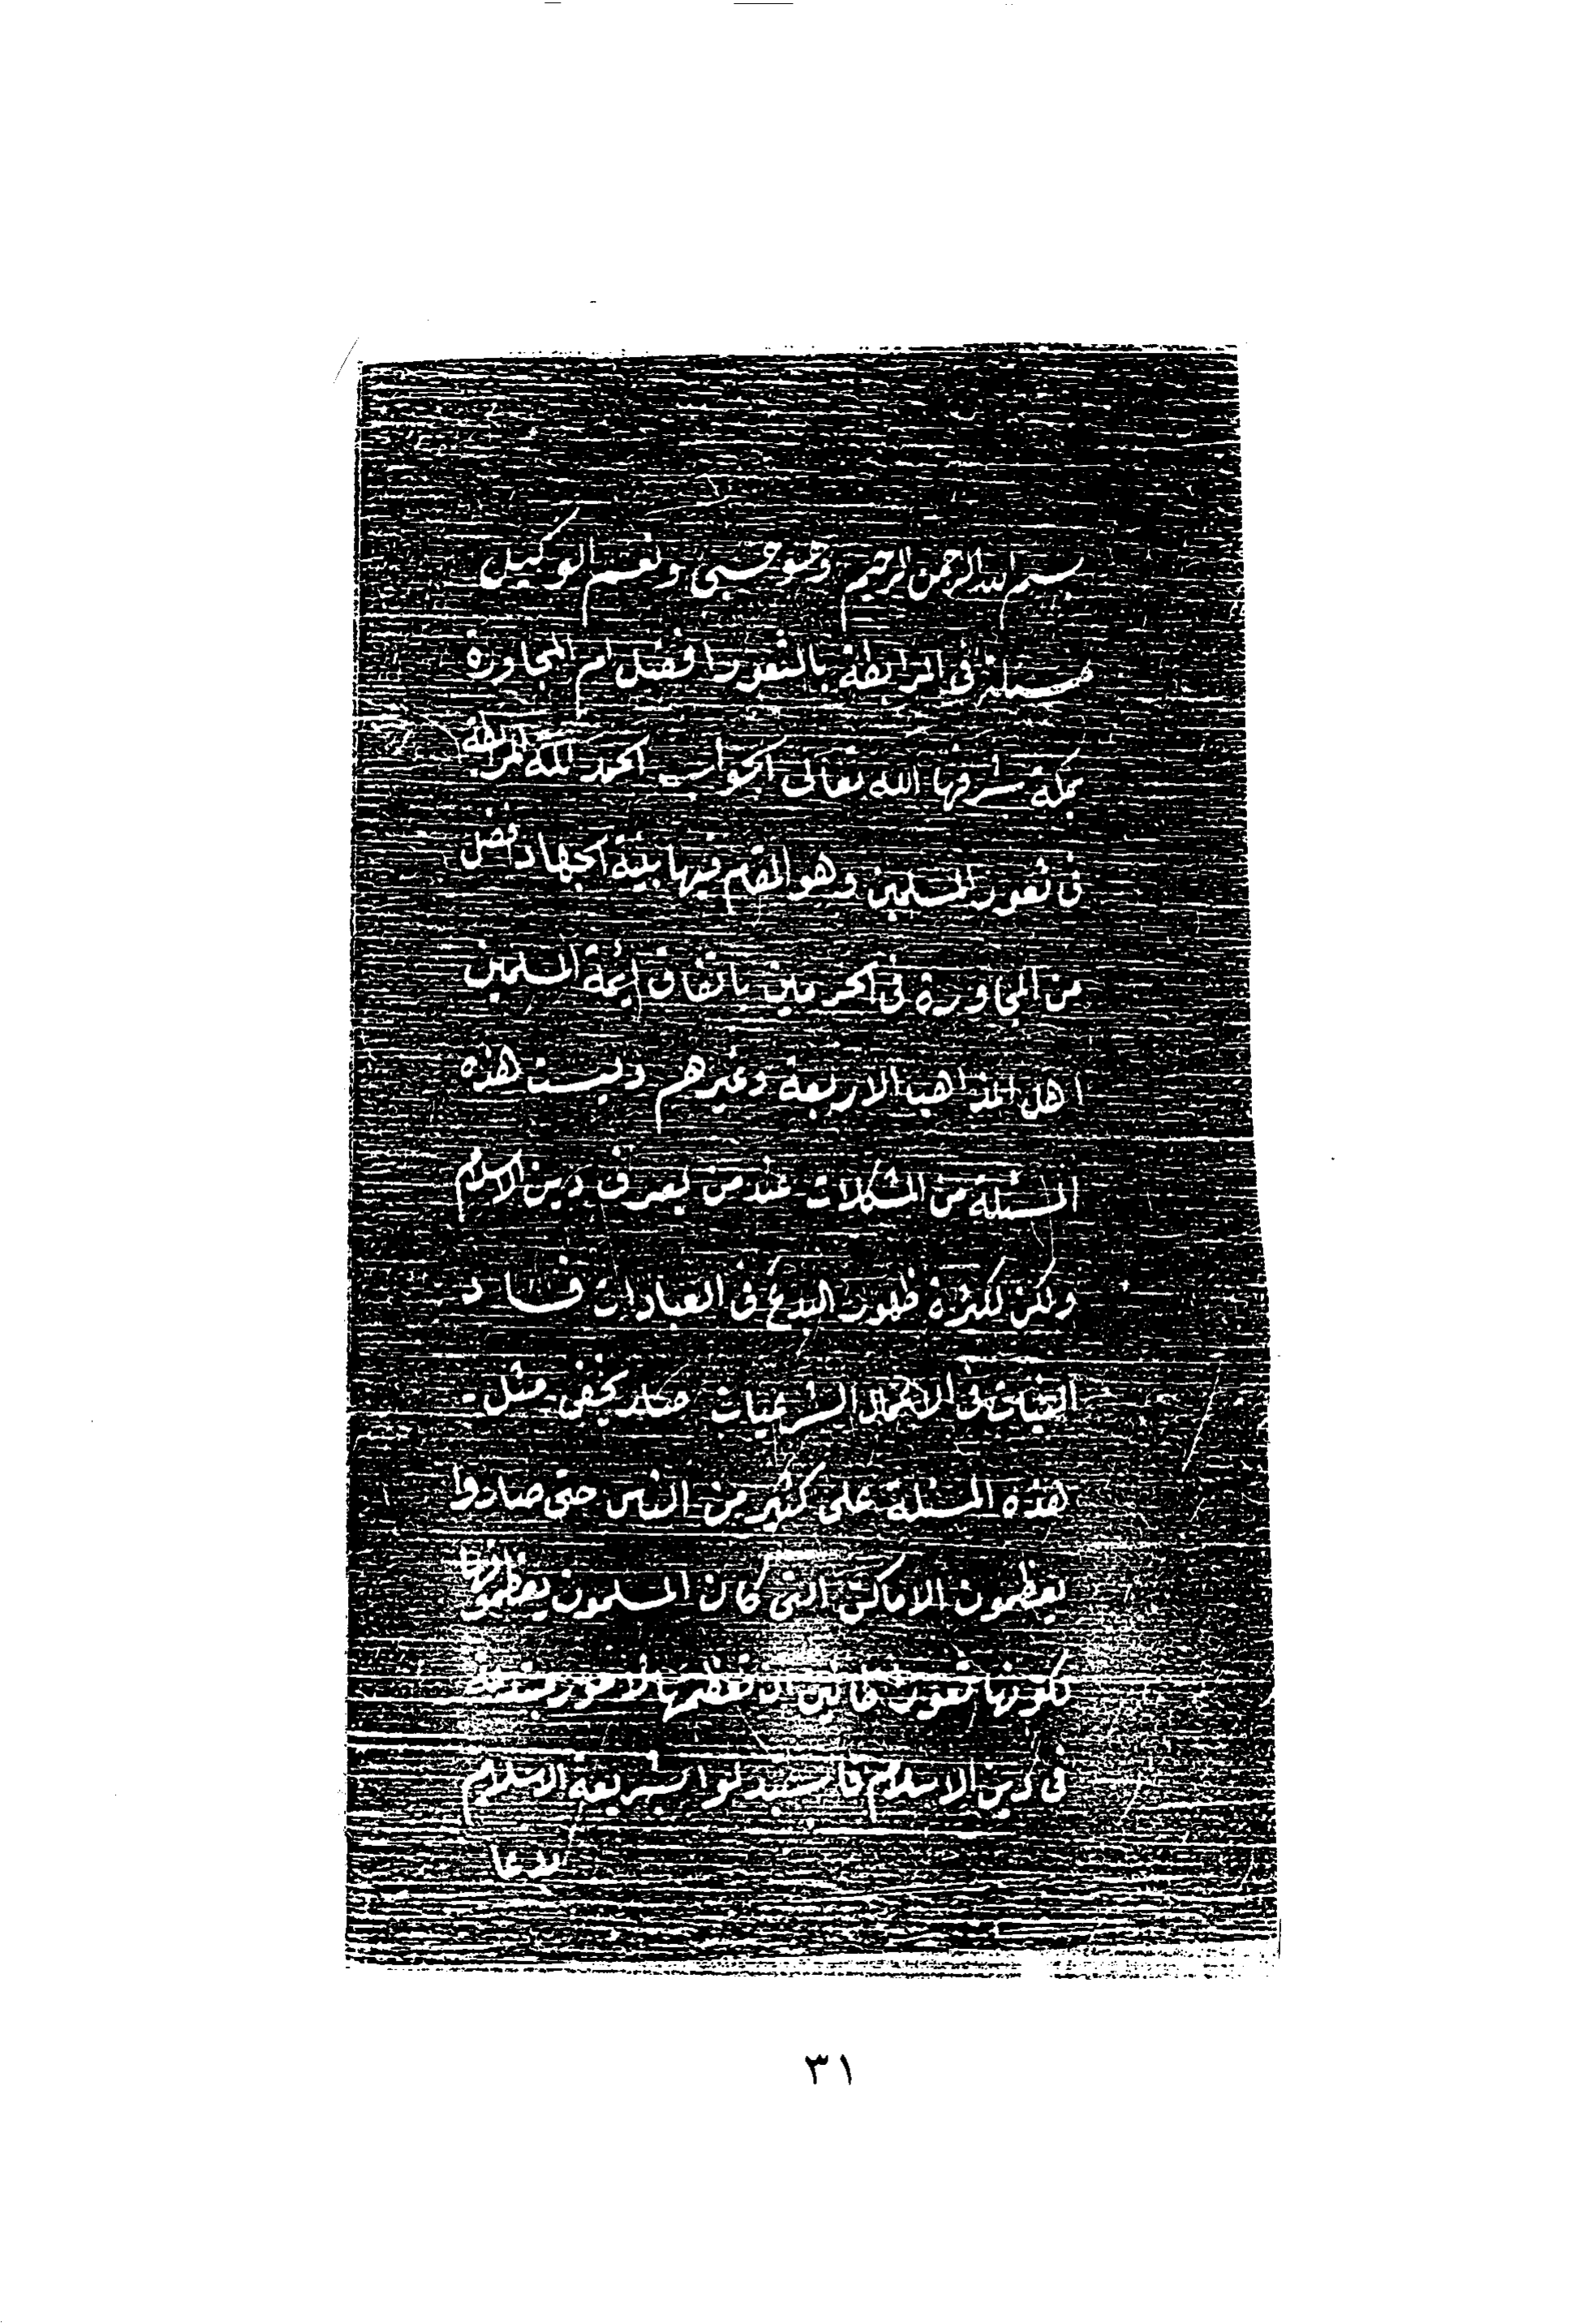 بسم الله الرحمن الرحيم وهو حسبي ونعم الوكيل
مسئلة في المرابطة بالثغور افضل ام المجاورة
بمكة شرفها الله تعالى الجواب الحمد لله المرابطة
في ثغور المسلمين وهو المقام فيها بنية الجهاد افضل
من المجاورة في الحرمين باتفاق ايمة المسلمين
اهل المذاهب الاربعة وغيرهم وليست هذه
المسئلة من المشكلات عند من يعرف دين الاسلام
ولكن لكثرة ظهور البدع في العبادات وفساد
النيات في الاعمال الشرعيات صار يخفى مثل
هذه المسئلة على كثير من الناس حتى صاروا
يعظمون الاماكن التي كان المسلمون يعظمونها
لكونها ثغورا ظانين ان تعظيمها لامور
في دين الاسلام فاستبدلوا بشريعة الاسلام
٣١